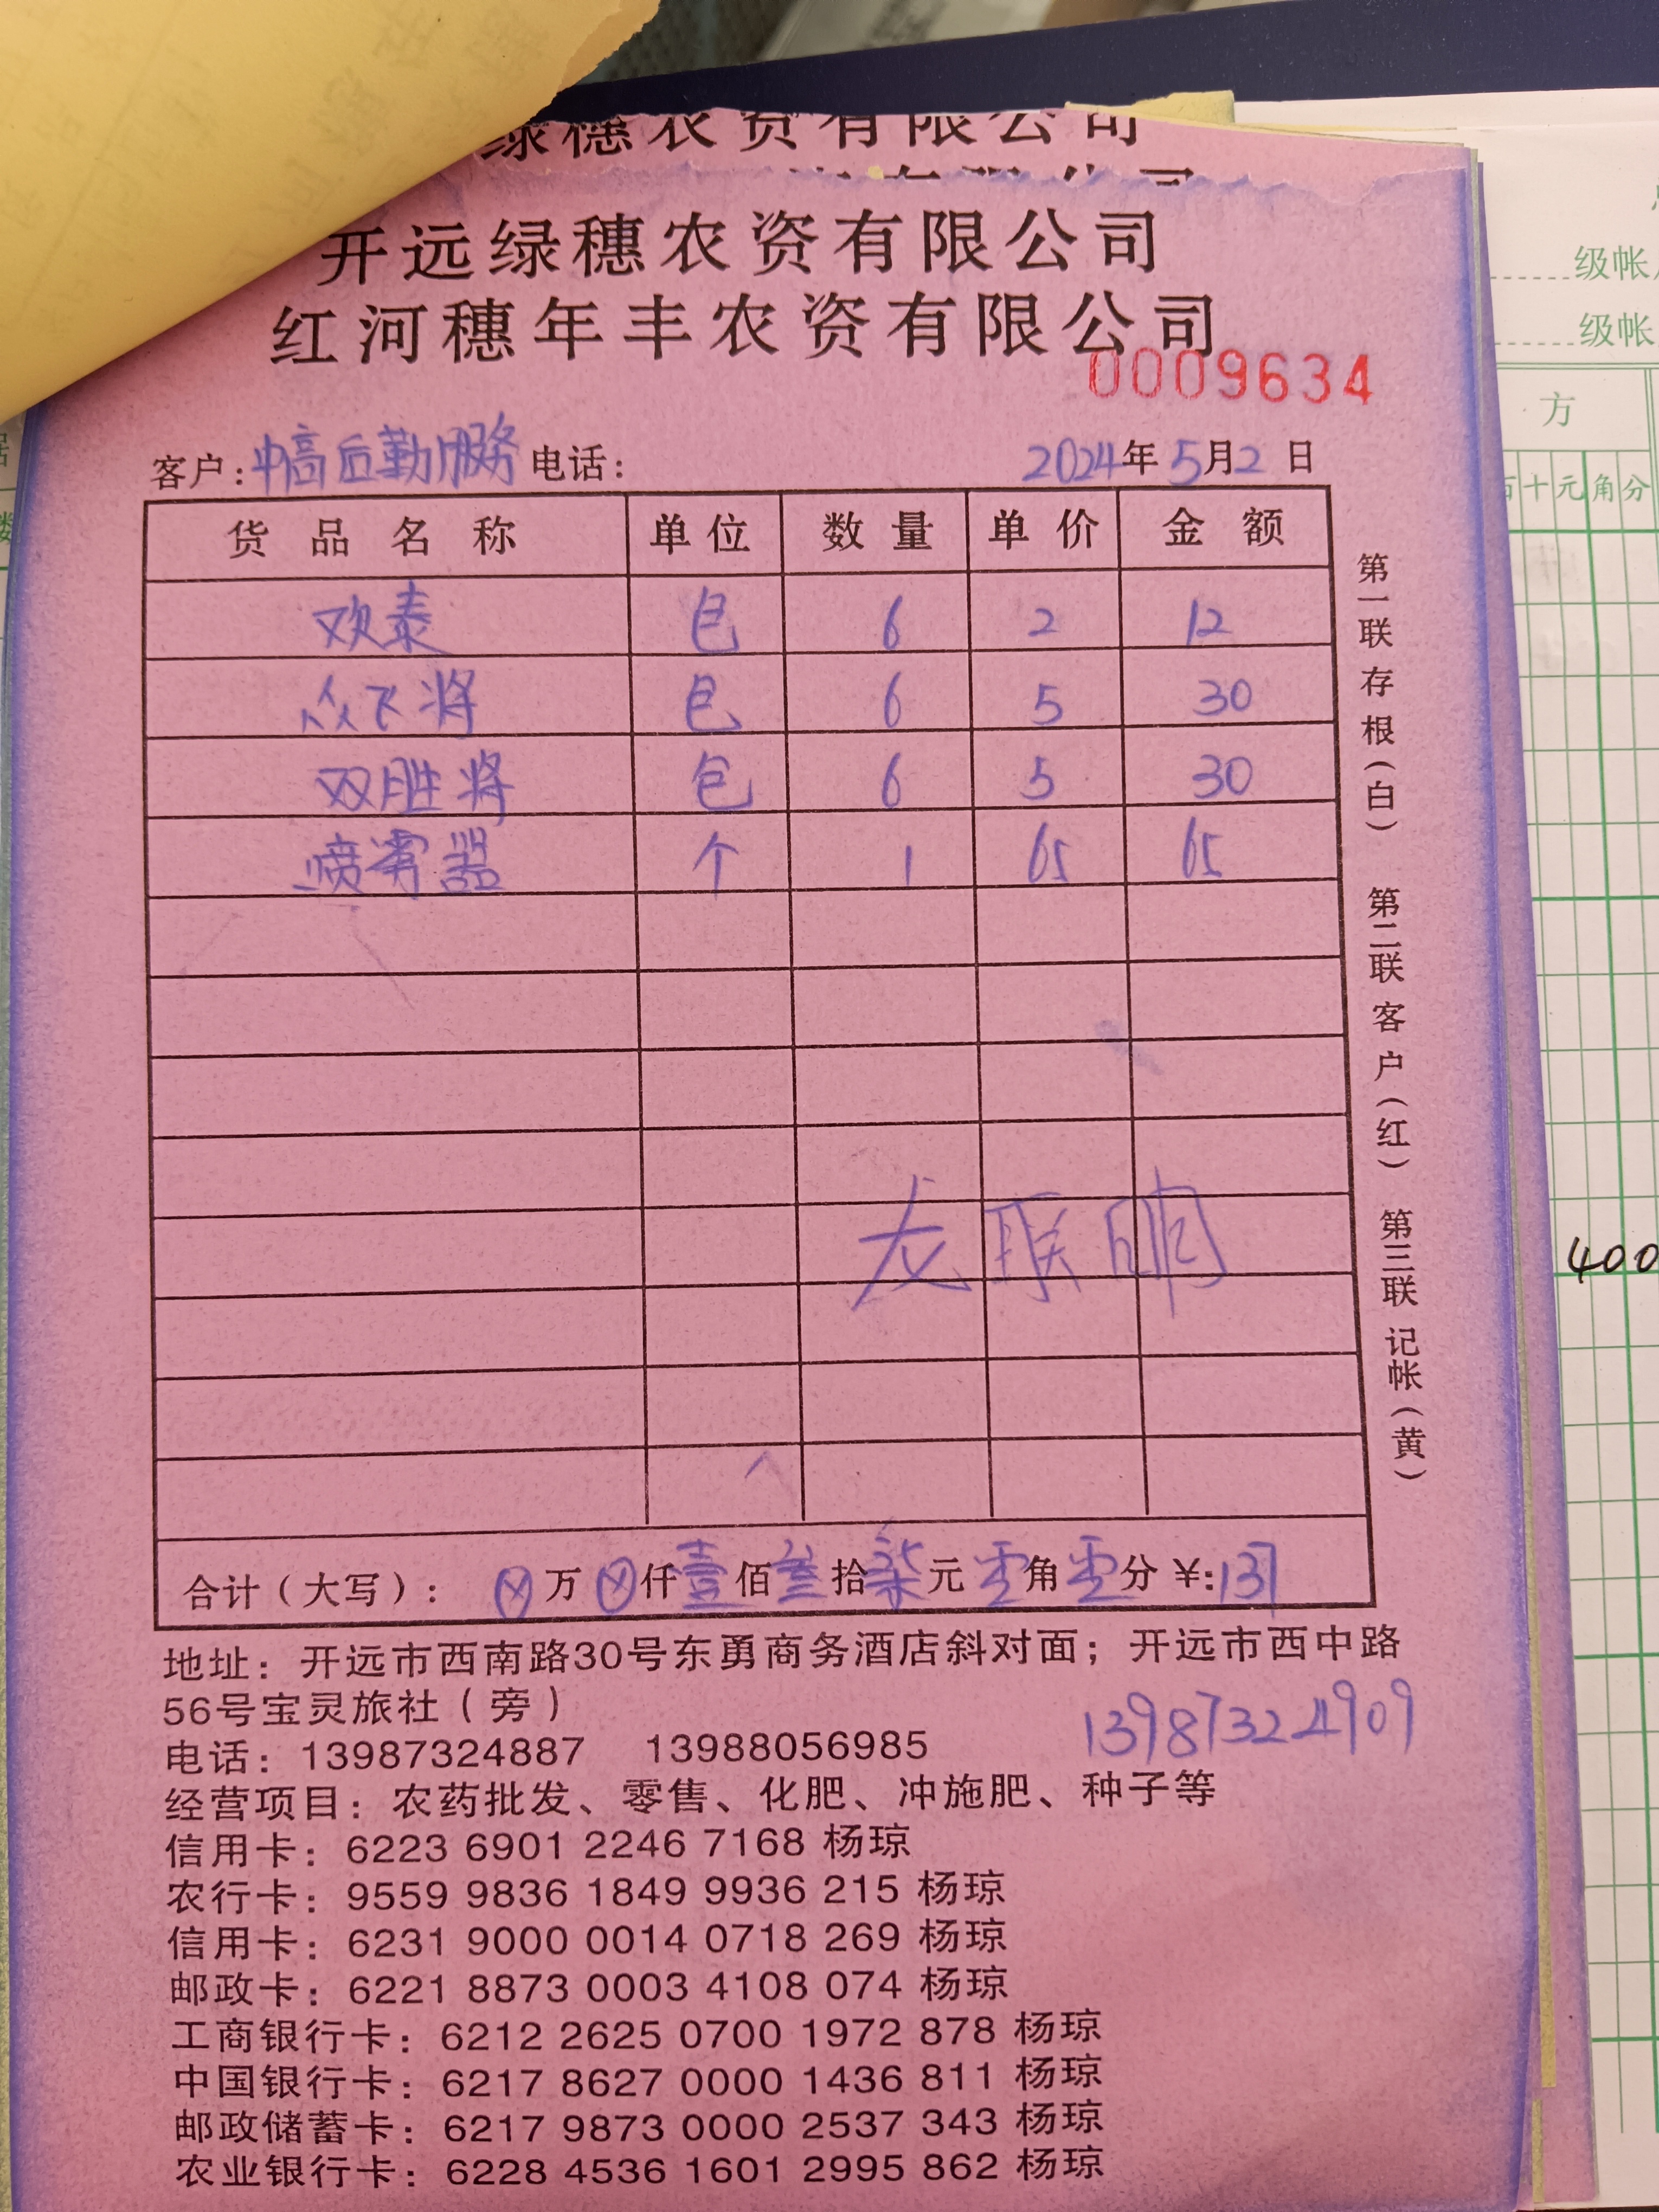 绿穗农资有限公司
开远绿穗农资有限公司
红河穗年丰农资有限公司
0009634
客户:中高后勤服务 电话: 2024年5月2日
货品名称 单位 数量 单价 金额
欢泰 包 6 2 12
众飞将 包 6 5 30
双胜将 包 6 5 30
喷雾器 个 1 65 65
龙联
合计(大写): ⊗万⊗仟壹佰叁拾柒元零角零分 ¥:137
第一联存根(白) 第二联客户(红) 第三联记帐(黄)
地址: 开远市西南路30号东勇商务酒店斜对面; 开远市西中路
56号宝灵旅社(旁)
13987324909
电话: 13987324887 13988056985
经营项目: 农药批发、零售、化肥、冲施肥、种子等
信用卡: 6223 6901 2246 7168 杨琼
农行卡: 9559 9836 1849 9936 215 杨琼
信用卡: 6231 9000 0014 0718 269 杨琼
邮政卡: 6221 8873 0003 4108 074 杨琼
工商银行卡: 6212 2625 0700 1972 878 杨琼
中国银行卡: 6217 8627 0000 1436 811 杨琼
邮政储蓄卡: 6217 9873 0000 2537 343 杨琼
农业银行卡: 6228 4536 1601 2995 862 杨琼
级帐
级帐
方
十元角分
400